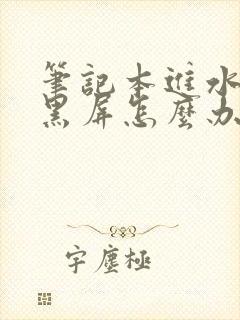 筆記本進水
黑屏怎麼办
字塵極